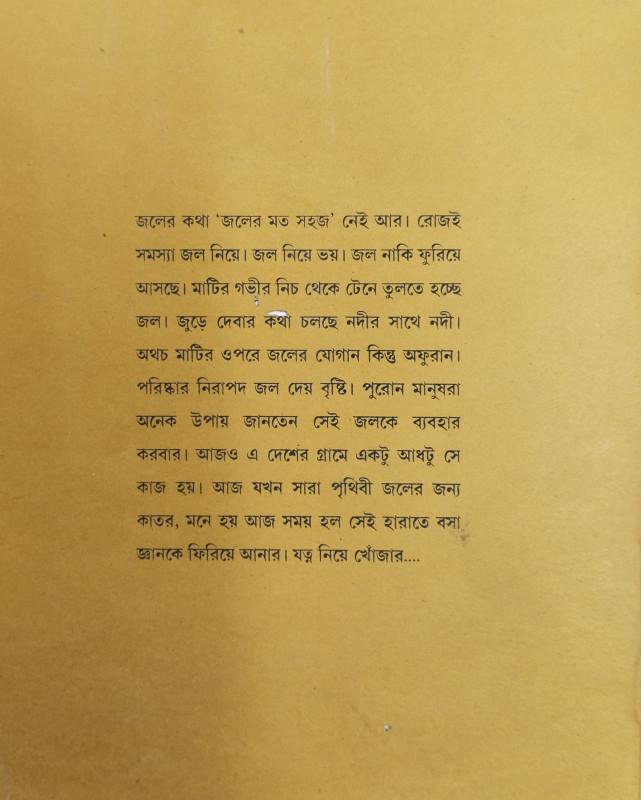 জলের কথা ‘জলের মত সহজ’ নেই আর। রোজই
সমস্যা জল নিয়ে। জল নিয়ে ভয়। জল নাকি ফুরিয়ে
আসছে। মাটির গভীর নিচ থেকে টেনে তুলতে হচ্ছে
জল। জুড়ে দেবার কথা চলছে নদীর সাথে নদী।
অথচ মাটির ওপরে জলের যোগান কিন্তু অফুরান।
পরিষ্কার নিরাপদ জল দেয় বৃষ্টি। পুরোন মানুষরা
অনেক উপায় জানতেন সেই জলকে ব্যবহার
করবার। আজও এ দেশের গ্রামে একটু আধটু সে
কাজ হয়। আজ যখন সারা পৃথিবী জলের জন্য
কাতর, মনে হয় আজ সময় হল সেই হারাতে বসা
জ্ঞানকে ফিরিয়ে আনার। যত্ন নিয়ে খোঁজার....